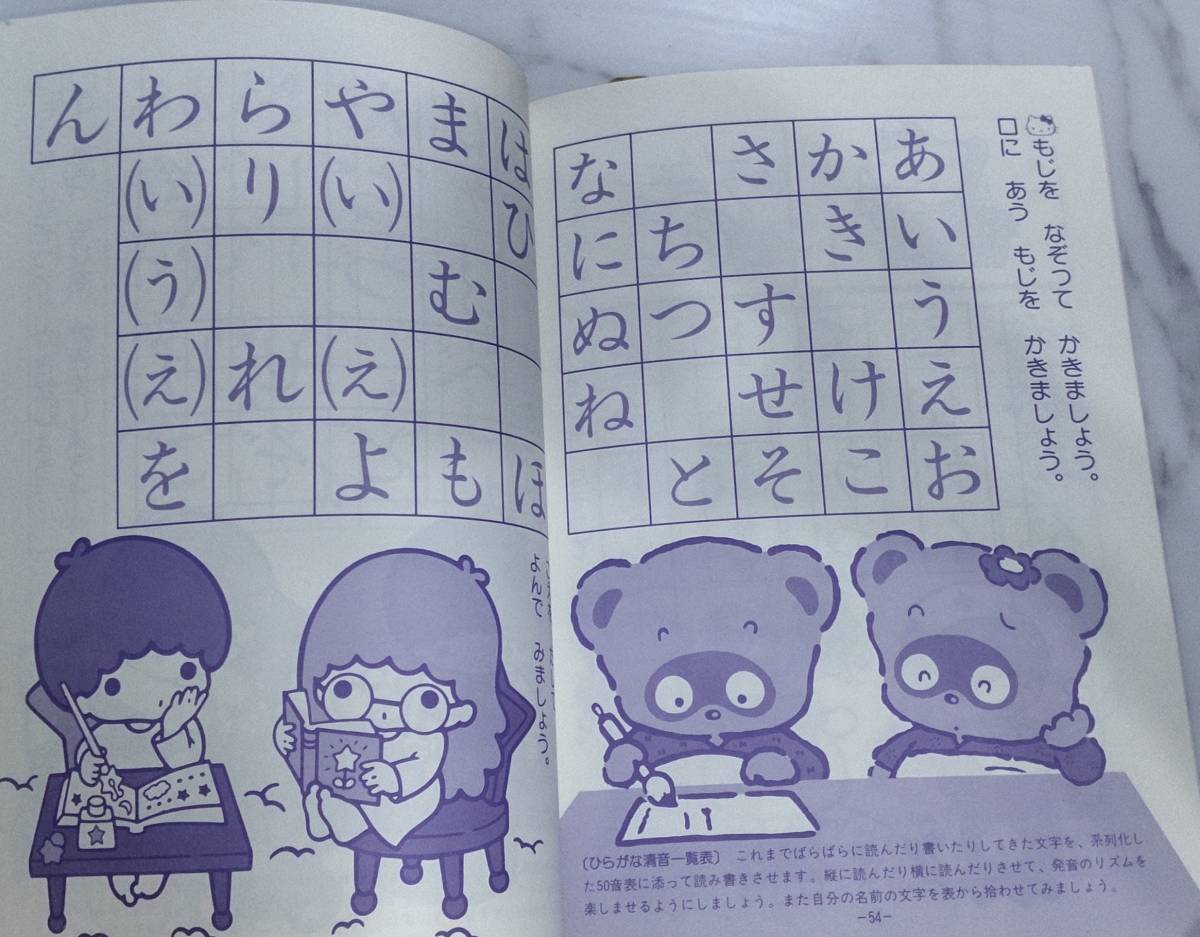 もじを なぞって かきましょう。
□に あう もじを かきましょう。
あいうえお
かきけこ
さすせそ
ちつと
なにぬね
〔ひらがな清音一覧表〕 これまでばらばらに読んだり書いたりしてきた文字を、系列化し
た50音表に添って読み書きさせます。縦に読んだり横に読んだりさせて、発音のリズムを
楽しませるようにしましょう。また自分の名前の文字を表から拾わせてみましょう。
—54—
はひほ
まむも
や(い)(え)よ
らりれ
わ(い)(う)(え)を
ん
よんで みましょう。